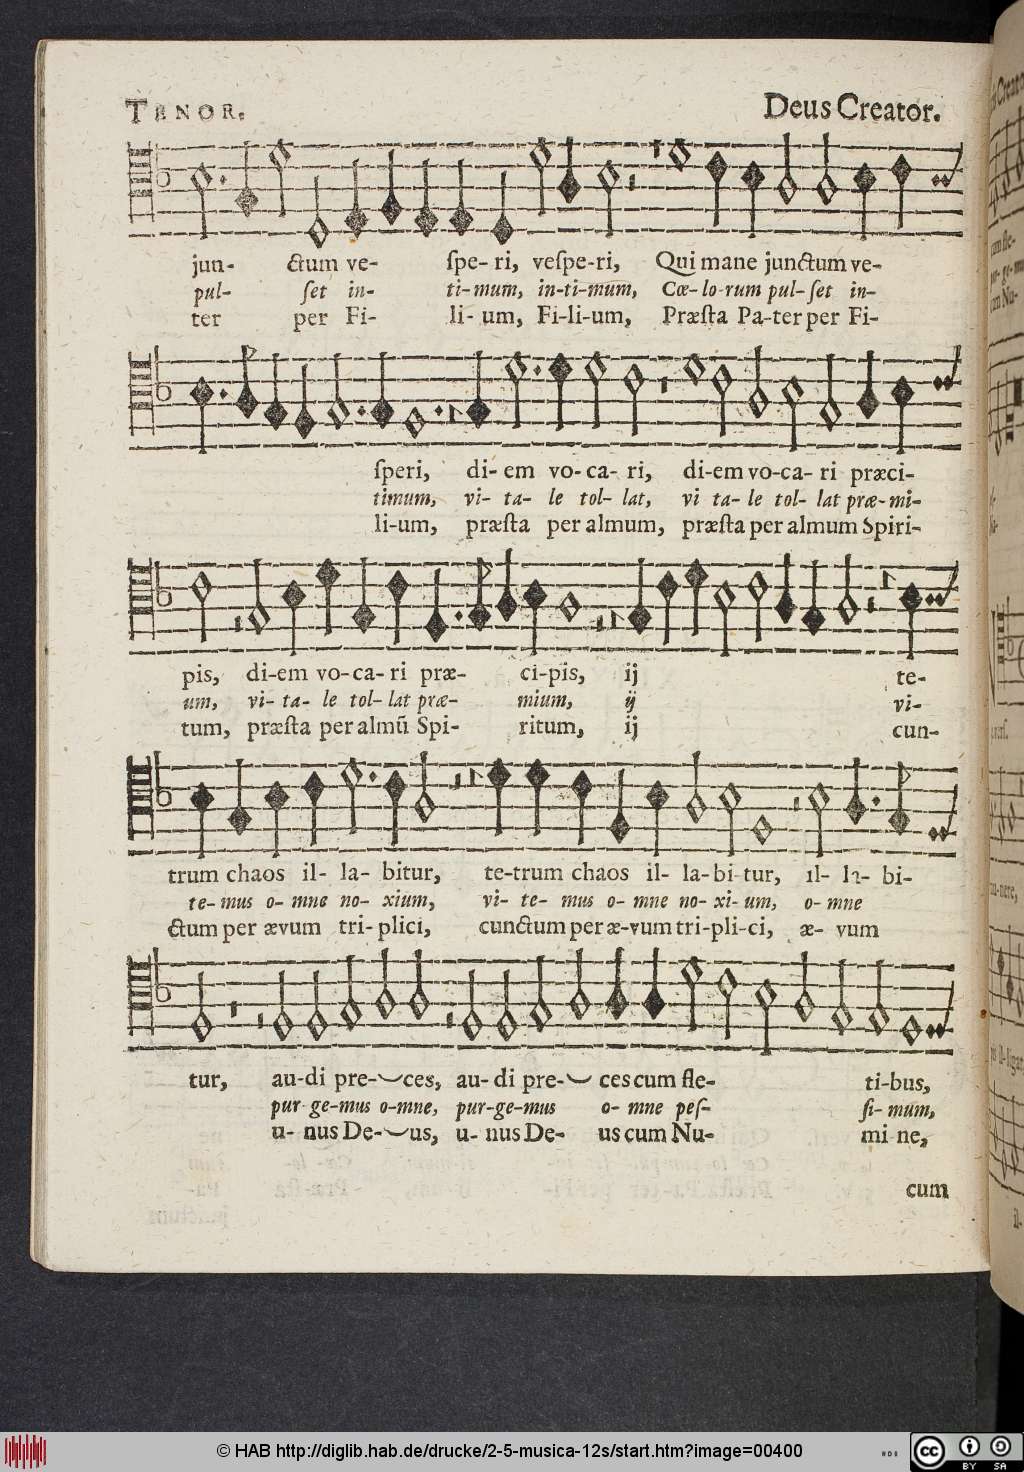 TENOR. Deus Creator.
jun- ctum ve- ſpe- ri, veſpe-ri, Qui mane junctum ve-
pul- ſet in- ti-mum, in-ti-mum, Cœ-lo-rum pul-ſet in-
ter per Fi- li- um, Fi-li-um, Præſta Pa-ter per Fi-
ſperi, di- em vo- ca- ri, di-em vo-ca- ri præci-
timum, vi- ta- le tol- lat, vi ta- le tol- lat præ-mi-
li-um, præſta per almum, præſta per almum Spiri-
pis, di-em vo-ca- ri præ- ci-pis, ij te-
um, vi- ta- le tol- lat præ- mium, ij vi-
tum, præſta per almũ Spi- ritum, ij cun-
trum chaos il- la- bitur, te-trum chaos il- la-bi-tur, il- la- bi-
te-mus o- mne no- xium, vi- te- mus o- mne no- xi- um, o- mne
ctum per ævum tri- plici, cunctum per æ-vum tri-pli-ci, æ- vum
tur, au-di pre- ces, au- di pre- ces cum fle- ti-bus,
pur-ge-mus o-mne, pur-ge-mus o- mne peſ- ſi- mum,
u- nus De- us, u- nus De- us cum Nu- mi-ne,
cum
© HAB http://diglib.hab.de/drucke/2-5-musica-12s/start.htm?image=00400
cc BY SA